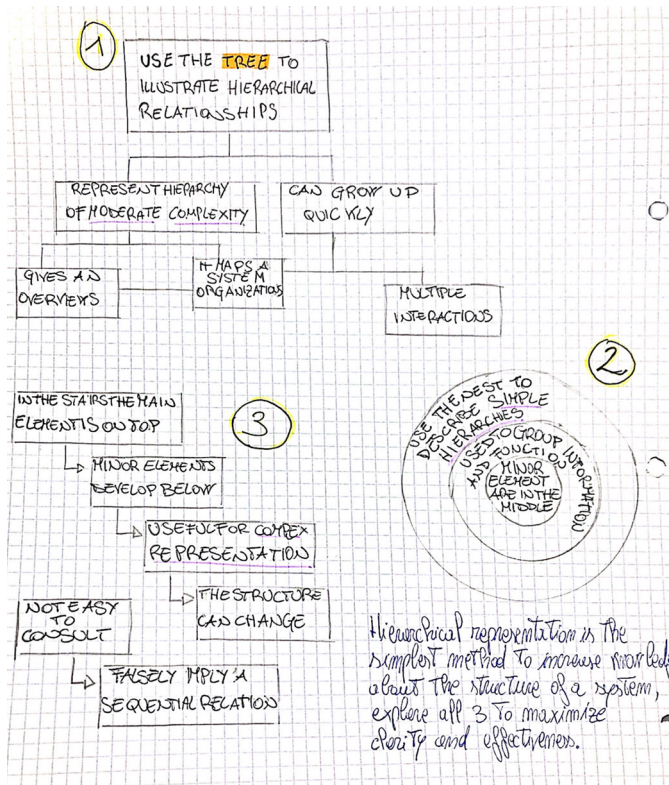 1
USE THE TREE TO
ILLUSTRATE HIERARCHICAL
RELATIONSHIPS
REPRESENT HIERARCHY
OF MODERATE COMPLEXITY
CAN GROW UP
QUICKLY
GIVES AN
OVERVIEWS
IT MAPS A
SYSTEM
ORGANIZATIONS
MULTIPLE
INTERACTIONS
2
USE THE NEST TO
DESCRIBE SIMPLE
HIERARCHIES
USED TO GROUP INFORMATION
AND FUNCTION
MINOR
ELEMENT
ARE IN THE
MIDDLE
3
IN THE STAIRS THE MAIN
ELEMENT IS ON TOP
MINOR ELEMENTS
DEVELOP BELOW
USEFUL FOR COMPEX
REPRESENTATION
THE STRUCTURE
CAN CHANGE
NOT EASY
TO
CONSULT
FALSELY IMPLY A
SEQUENTIAL RELATION
Hierarchical representation is the
simplest method to increase knowled
about the structure of a system,
explore all 3 to maximize
clarity and effectiveness.